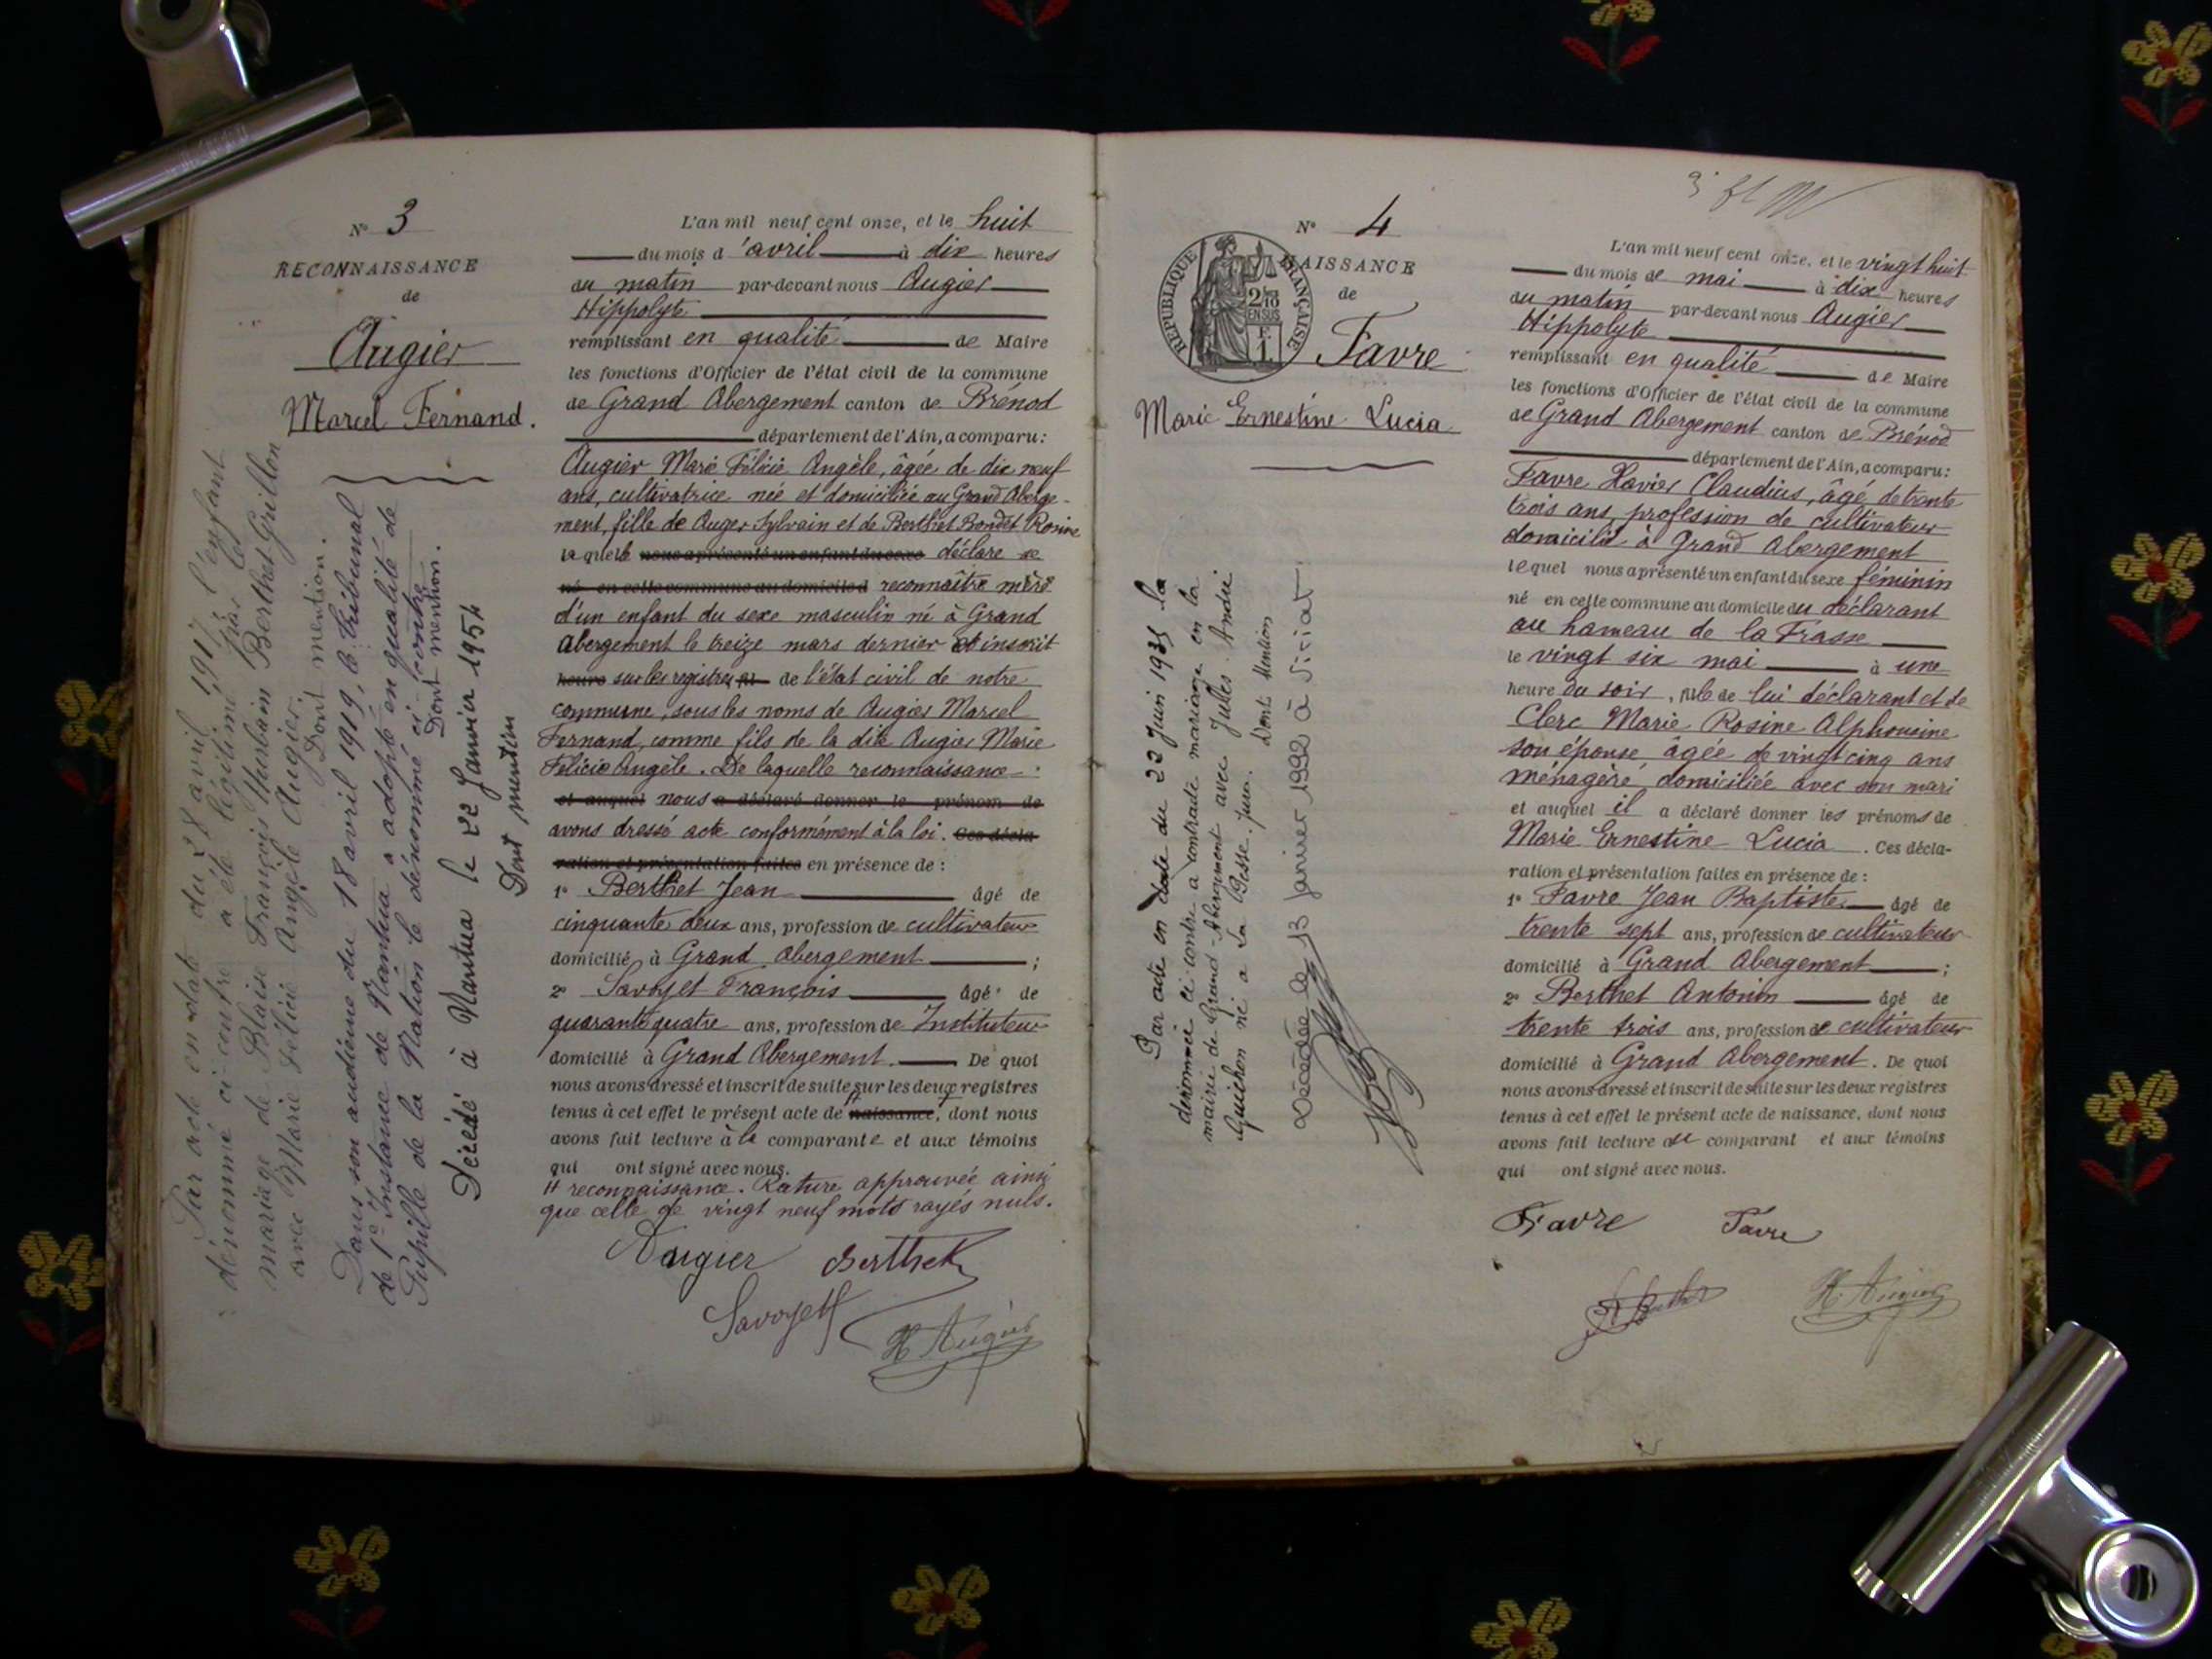 N° 3
RECONNAISSANCE
de
Augier
Marcel Fernand.
Par acte en date du 28 avril 1917 l'enfant
dénommé ci-contre a été légitimé par le
mariage de Blaise François Thurbain Berthet Grillon
avec Marie Félicie Angèle Augier.
Dont mention.
Dans son audience du 18 avril 1919, le tribunal
de 1e instance de Nantua a adopté en qualité de
Pupille de la Nation le dénommé ci-contre
Dont mention.
Décédé à Nantua le 22 Janvier 1954
Dont mention
L'an mil neuf cent onze, et le huit
du mois d'avril à dix heures
du matin par-devant nous Augier
Hippolyte
remplissant en qualité de Maire
les fonctions d'Officier de l'état civil de la commune
de Grand Abergement canton de Brénod
département de l'Ain, a comparu:
Augier Marie Félicie Angèle, âgée de dix neuf
ans, cultivatrice née et domiciliée au Grand Aberge-
ment, fille de Auger Sylvain et de Berthet Bondet Rosine
laquelle nous a présenté un enfant du sexe déclare se
né en cette commune au domicile d reconnaître mère
d'un enfant du sexe masculin né à Grand
Abergement le treize mars dernier et inscrit
heure sur les registres fil de l'état civil de notre
commune, sous les noms de Augier Marcel
Fernand, comme fils de la dite Augier Marie
Félicie Angèle. De laquelle reconnaissance
et auquel nous a déclaré donner le prénom de
avons dressé acte conformément à la loi. Ces décla-
ration et présentation faites en présence de :
1° Berthet Jean âgé de
cinquante deux ans, profession de cultivateur
domicilié à Grand Abergement ;
2° Savoyet François âgé de
quarante quatre ans, profession de Instituteur
domicilié à Grand Abergement. De quoi
nous avons dressé et inscrit de suite sur les deux registres
tenus à cet effet le présent acte de naissance, dont nous
avons fait lecture à la comparante et aux témoins
qui ont signé avec nous.
# reconnaissance. Rature approuvée ainsi
que celle de vingt neuf mots rayés nuls.
Augier Berthet
Savoyet
H. Augier
N° 4
NAISSANCE
de
RÉPUBLIQUE FRANÇAISE
2/10
EN SUS
F.
1.
Favre
Marie Ernestine Lucia
Par acte en date du 22 Juin 1935 la
dénommée ci-contre a contracté mariage en la
mairie de Grand-Abergement avec Jules André
Guichon né à La Pesse. Jura.
Dont Mention
Décédée le 13 Janvier 1992 à Viriat
L'an mil neuf cent onze, et le vingt huit
du mois de mai à dix heures
du matin par-devant nous Augier
Hippolyte
remplissant en qualité de Maire
les fonctions d'Officier de l'état civil de la commune
de Grand Abergement canton de Brénod
département de l'Ain, a comparu:
Favre Xavier Claudius, âgé de trente
trois ans, profession de cultivateur
domicilié à Grand Abergement
lequel nous a présenté un enfant du sexe féminin
né en cette commune au domicile du déclarant
au hameau de la Frasse
le vingt six mai à une
heure du soir, fille de lui déclarant et de
Clerc Marie Rosine Alphonsine
son épouse, âgée de vingt cinq ans
ménagère, domiciliée avec son mari
et auquel il a déclaré donner les prénoms de
Marie Ernestine Lucia. Ces décla-
ration et présentation faites en présence de :
1° Favre Jean Baptiste âgé de
trente sept ans, profession de cultivateur
domicilié à Grand Abergement ;
2° Berthet Antonin âgé de
trente trois ans, profession de cultivateur
domicilié à Grand Abergement. De quoi
nous avons dressé et inscrit de suite sur les deux registres
tenus à cet effet le présent acte de naissance, dont nous
avons fait lecture au comparant et aux témoins
qui ont signé avec nous.
Favre Favre
H. Augier